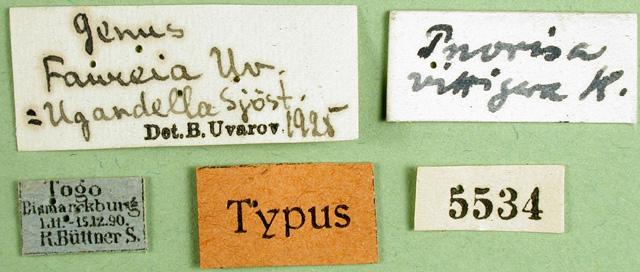 Genus
Faureia Uv.
= Ugandella Sjöst.
Det. B. Uvarov 1925
Pnorisa
vittigera K.
Togo
Bismarckburg
1.11.-15.12.90.
R. Büttner S.
Typus
5534